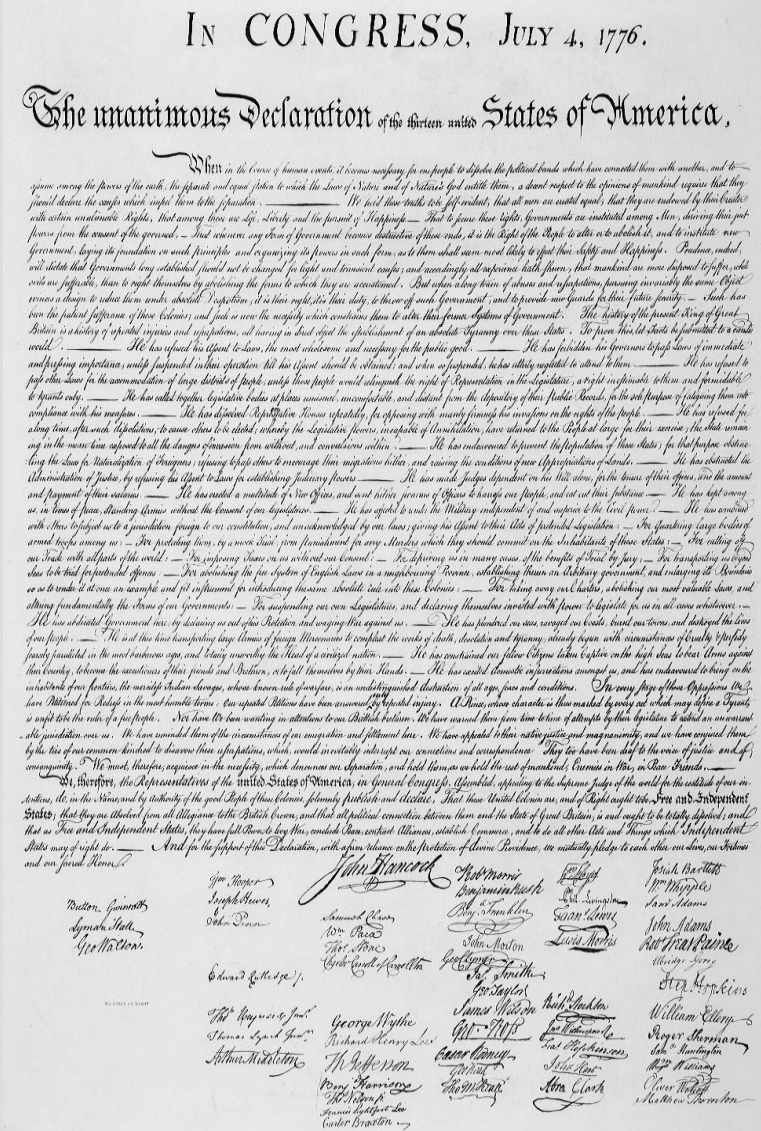 IN CONGRESS, JULY 4, 1776.
The unanimous Declaration of the thirteen united States of America,
When in the Course of human events, it becomes necessary for one people to dissolve the political bands which have connected them with another, and to
assume among the powers of the earth, the separate and equal station to which the Laws of Nature and of Nature's God entitle them, a decent respect to the opinions of mankind requires that they
should declare the causes which impel them to the separation. — We hold these truths to be self-evident, that all men are created equal, that they are endowed by their Creator
with certain unalienable Rights, that among these are Life, Liberty and the pursuit of Happiness.— That to secure these rights, Governments are instituted among Men, deriving their just
powers from the consent of the governed,— That whenever any Form of Government becomes destructive of these ends, it is the Right of the People to alter or to abolish it, and to institute new
Government, laying its foundation on such principles and organizing its powers in such form, as to them shall seem most likely to effect their Safety and Happiness. Prudence, indeed,
will dictate that Governments long established should not be changed for light and transient causes; and accordingly all experience hath shewn, that mankind are more disposed to suffer, while
evils are sufferable, than to right themselves by abolishing the forms to which they are accustomed. But when a long train of abuses and usurpations, pursuing invariably the same Object
evinces a design to reduce them under absolute Despotism, it is their right, it is their duty, to throw off such Government, and to provide new Guards for their future security.— Such has
been the patient sufferance of these Colonies; and such is now the necessity which constrains them to alter their former Systems of Government. The history of the present King of Great
Britain is a history of repeated injuries and usurpations, all having in direct object the establishment of an absolute Tyranny over these States. To prove this, let Facts be submitted to a candid
world. — He has refused his Assent to Laws, the most wholesome and necessary for the public good. — He has forbidden his Governors to pass Laws of immediate
and pressing importance, unless suspended in their operation till his Assent should be obtained; and when so suspended, he has utterly neglected to attend to them. — He has refused to
pass other Laws for the accommodation of large districts of people, unless those people would relinquish the right of Representation in the Legislature, a right inestimable to them and formidable
to tyrants only. — He has called together legislative bodies at places unusual, uncomfortable, and distant from the depository of their public Records, for the sole purpose of fatiguing them into
compliance with his measures. — He has dissolved Representative Houses repeatedly, for opposing with manly firmness his invasions on the rights of the people. — He has refused for
a long time, after such dissolutions, to cause others to be elected; whereby the Legislative powers, incapable of Annihilation, have returned to the People at large for their exercise; the State remain-
ing in the mean time exposed to all the dangers of invasion from without, and convulsions within. — He has endeavoured to prevent the population of these States; for that purpose obstruc-
ting the Laws for Naturalization of Foreigners; refusing to pass others to encourage their migrations hither, and raising the conditions of new Appropriations of Lands. — He has obstructed the
Administration of Justice, by refusing his Assent to Laws for establishing Judiciary powers. — He has made Judges dependent on his Will alone, for the tenure of their offices, and the amount
and payment of their salaries. — He has erected a multitude of New Offices, and sent hither swarms of Officers to harrass our people, and eat out their substance. — He has kept among
us, in times of peace, Standing Armies without the Consent of our legislatures. — He has affected to render the Military independent of and superior to the Civil power. — He has combined
with others to subject us to a jurisdiction foreign to our constitution, and unacknowledged by our laws; giving his Assent to their Acts of pretended Legislation: — For Quartering large bodies of
armed troops among us: — For protecting them, by a mock Trial, from punishment for any Murders which they should commit on the Inhabitants of these States: — For cutting off
our Trade with all parts of the world: — For imposing Taxes on us without our Consent: — For depriving us in many cases, of the benefits of Trial by Jury: — For transporting us beyond
Seas to be tried for pretended offences: — For abolishing the free System of English Laws in a neighbouring Province, establishing therein an Arbitrary government, and enlarging its Boundaries
so as to render it at once an example and fit instrument for introducing the same absolute rule into these Colonies: — For taking away our Charters, abolishing our most valuable Laws, and
altering fundamentally the Forms of our Governments: — For suspending our own Legislatures, and declaring themselves invested with power to legislate for us in all cases whatsoever. —
He has abdicated Government here, by declaring us out of his Protection and waging War against us. — He has plundered our seas, ravaged our Coasts, burnt our towns, and destroyed the lives
of our people. — He is at this time transporting large Armies of foreign Mercenaries to compleat the works of death, desolation and tyranny, already begun with circumstances of Cruelty & perfidy
scarcely paralleled in the most barbarous ages, and totally unworthy the Head of a civilized nation. — He has constrained our fellow Citizens taken Captive on the high Seas to bear Arms against
their Country, to become the executioners of their friends and Brethren, or to fall themselves by their Hands. — He has excited domestic insurrections amongst us, and has endeavoured to bring on the
inhabitants of our frontiers, the merciless Indian Savages, whose known rule of warfare, is an undistinguished destruction of all ages, sexes and conditions. In every stage of these Oppressions We
have Petitioned for Redress in the most humble terms: Our repeated Petitions have been answered by repeated injury. A Prince, whose character is thus marked by every act which may define a Tyrant,
is unfit to be the ruler of a free people. Nor have We been wanting in attentions to our Brittish brethren. We have warned them from time to time of attempts by their legislature to extend an unwarrant-
able jurisdiction over us. We have reminded them of the circumstances of our emigration and settlement here. We have appealed to their native justice and magnanimity, and we have conjured them
by the ties of our common kindred to disavow these usurpations, which, would inevitably interrupt our connections and correspondence They too have been deaf to the voice of justice and of
consanguinity. We must, therefore, acquiesce in the necessity, which denounces our Separation, and hold them, as we hold the rest of mankind, Enemies in War, in Peace Friends. —
We, therefore, the Representatives of the united States of America, in General Congress, Assembled, appealing to the Supreme Judge of the world for the rectitude of our in-
tentions, do, in the Name, and by Authority of the good People of these Colonies, solemnly publish and declare, That these United Colonies are, and of Right ought to be Free and Independent
States; that they are Absolved from all Allegiance to the British Crown, and that all political connection between them and the State of Great Britain, is and ought to be totally dissolved; and
that as Free and Independent States, they have full Power to levy War, conclude Peace, contract Alliances, establish Commerce, and to do all other Acts and Things which Independent
States may of right do. — And for the support of this Declaration, with a firm reliance on the protection of divine Providence, we mutually pledge to each other our Lives, our Fortunes
and our sacred Honor.
Button Gwinnett
Lyman Hall
Geo Walton.
Wm Hooper
Joseph Hewes,
John Penn
Edward Rutledge /.
Thos Heyward Junr.
Thomas Lynch Junr.
Arthur Middleton
John Hancock
Samuel Chase
Wm Paca
Thos. Stone
Charles Carroll of Carrollton
George Wythe
Richard Henry Lee
Th Jefferson
Benj Harrison
Thos Nelson jr.
Francis Lightfoot Lee
Carter Braxton
Robt Morris
Benjamin Rush
Benj. Franklin
John Morton
Geo Clymer
Jas. Smith
Geo. Taylor
James Wilson
Geo. Ross
Caesar Rodney
Geo Read
Tho M:Kean
Wm Floyd
Phil. Livingston
Frans. Lewis
Lewis Morris
Richd. Stockton
Jno Witherspoon
Fras. Hopkinson
John Hart
Abra Clark
Josiah Bartlett
Wm Whipple
Saml Adams
John Adams
Robt Treat Paine
Elbridge Gerry
Step. Hopkins
William Ellery
Roger Sherman
Saml Huntington
Wm Williams
Oliver Wolcott
Matthew Thornton